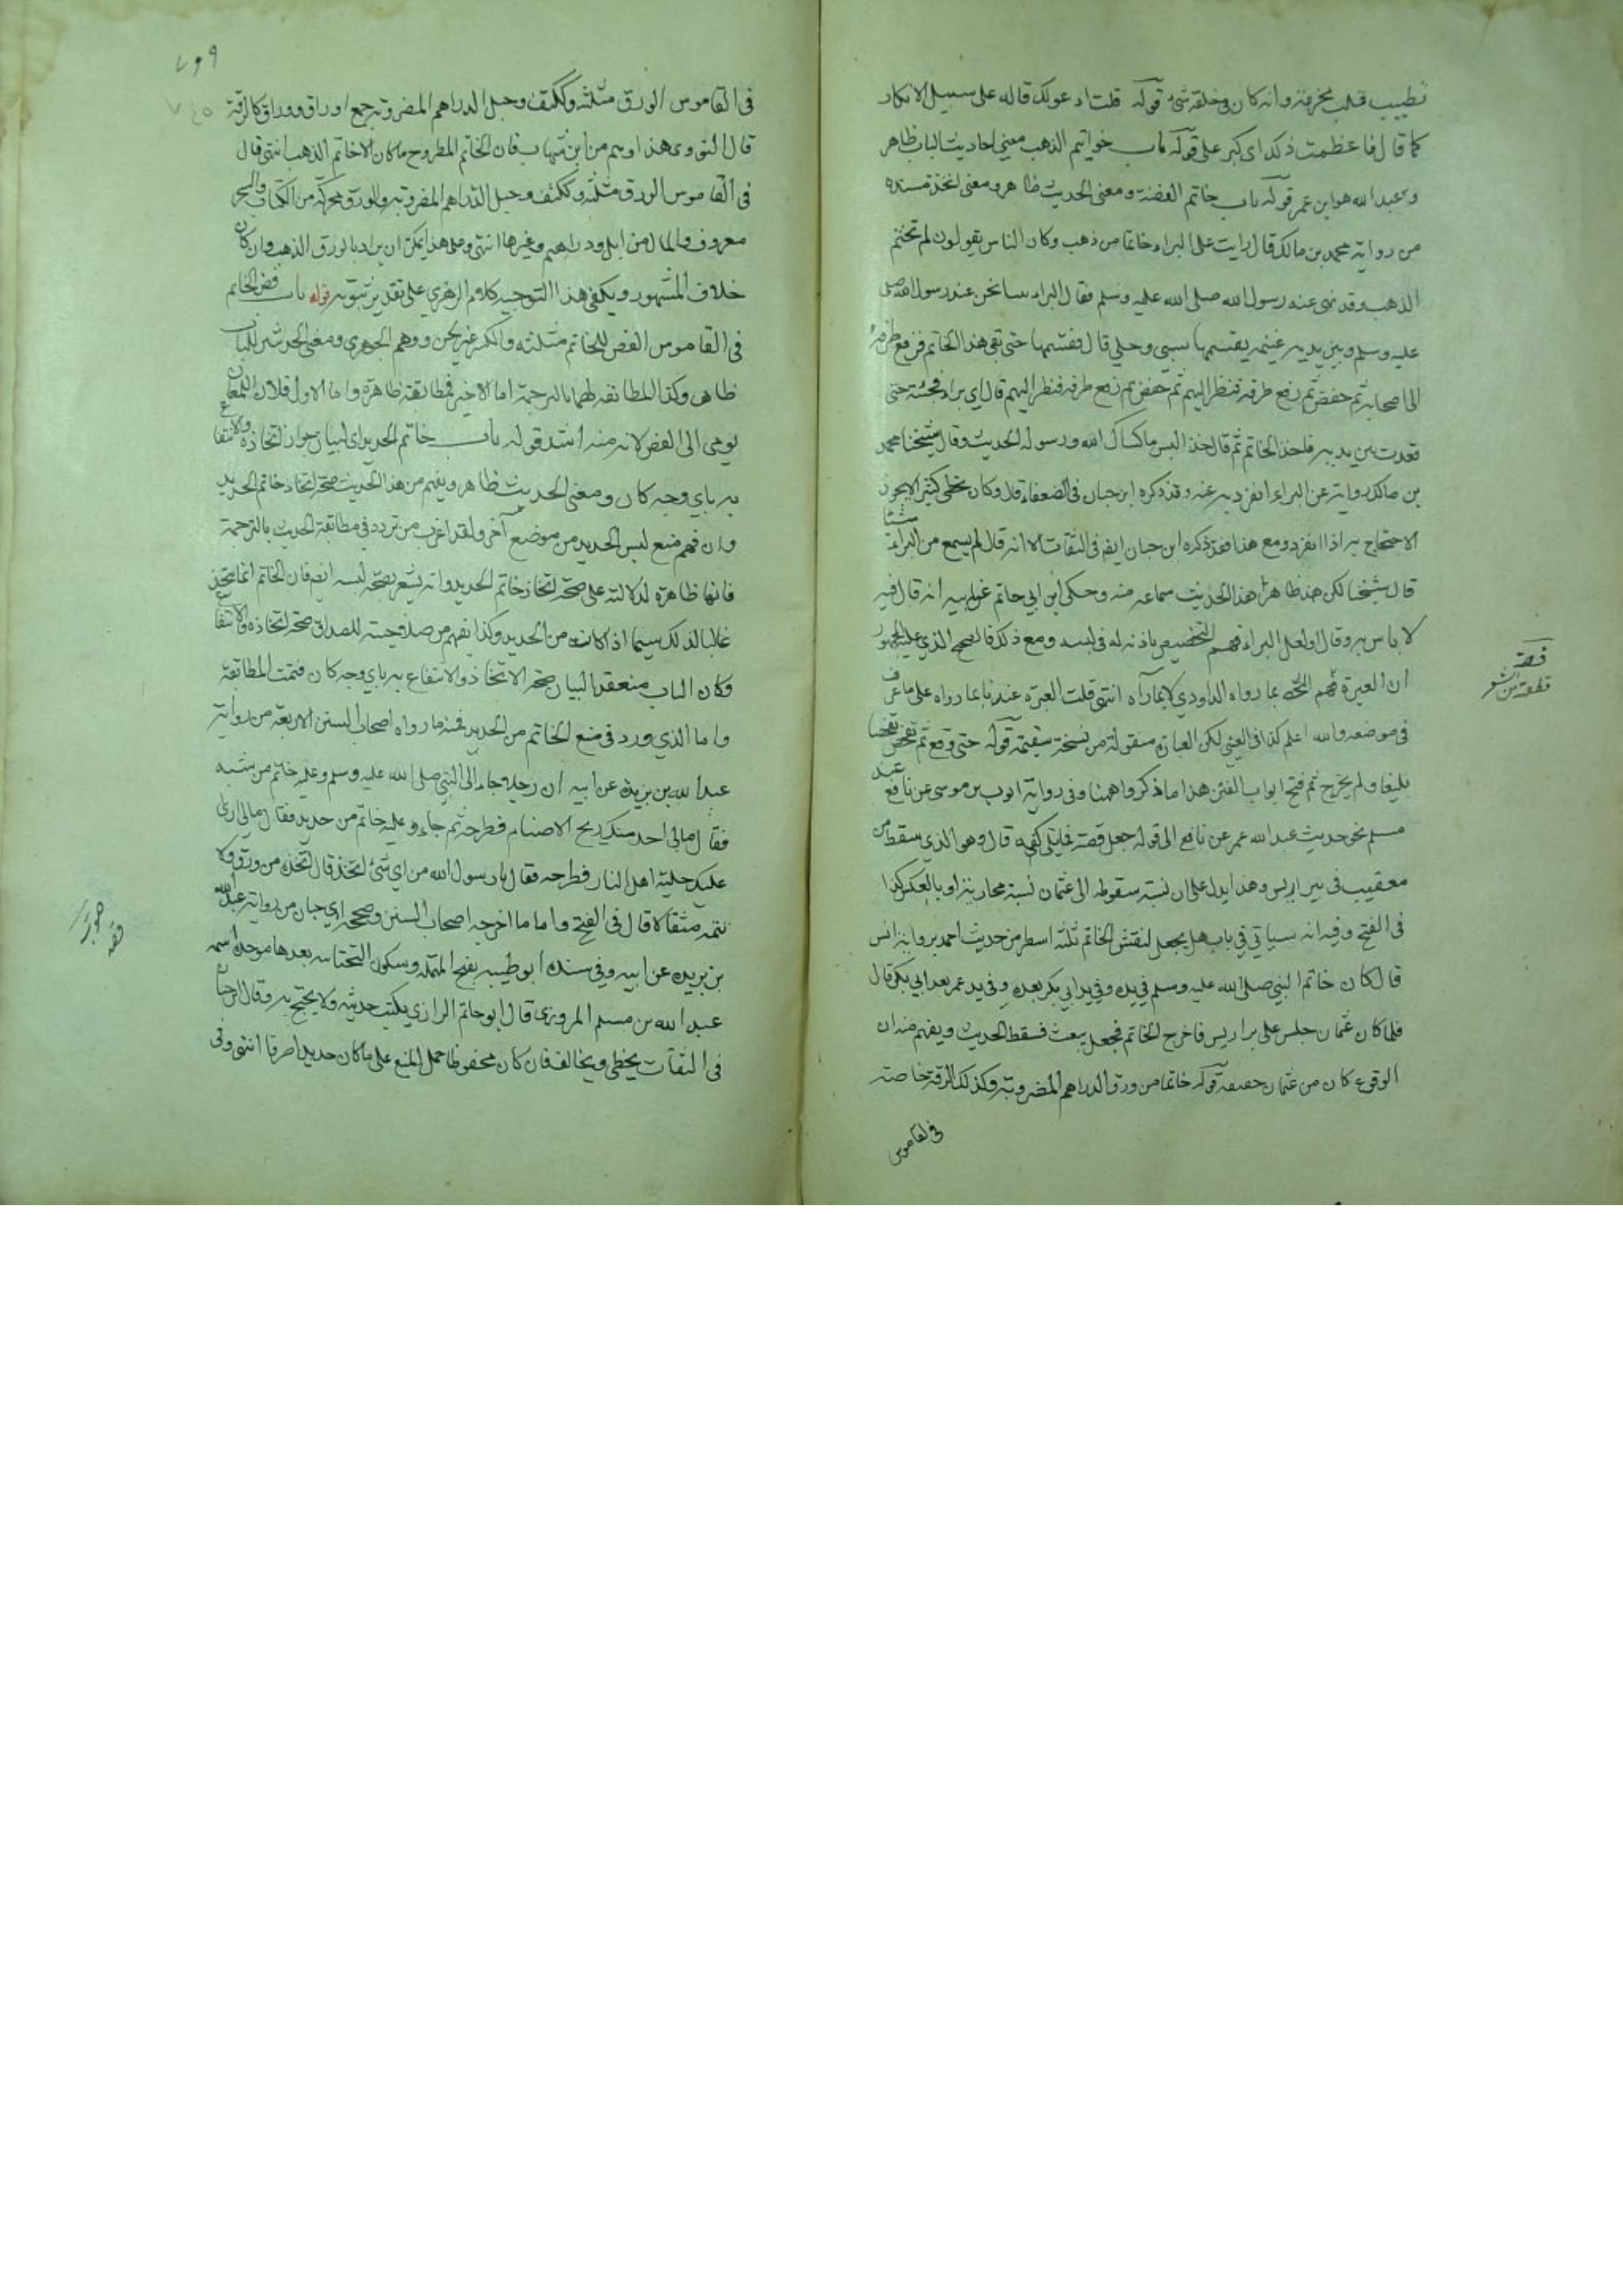 تطييب قلب مخرمة وانه كان في خلقه شئ قوله قلت ادعو لك قاله على سبيل الانكار
كما قال فاعظمت ذلك اي كبر علي قوله باب خواتيم الذهب معنى احاديث الباب ظاهر
وعبد الله هو ابن عمر قوله باب خاتم الفضة ومعنى الحديث ظاهر ومعنى
من رواية محمد بن مالك قال رايت على البراء خاتما من ذهب وكان الناس يقولون لم تختم
الذهب وقد نهى عنه رسول الله صلى الله عليه وسلم فقال البراء بينا نحن عند رسول الله صلى
عليه وسلم وبين يديه غنيمة يقسمها سبي وحلي قال فقسمها حتى بقي هذا الخاتم فرفع طرفه
الى اصحابه ثم خفض ثم رفع طرفه فنظر اليهم ثم خفض ثم رفع طرفه فنظر اليهم قال اي براء فجئته حتى
قعدت بين يديه فاخذ الخاتم ثم قال خذ البس ما كساك الله ورسوله الحديث وقال شيخنا محمد
بن مالك روايته عن البراء انفرد به عنه وقد ذكره ابن حبان في الضعفاء قال وكان يخطي كثيرا لا يجوز
الاحتجاج به اذا انفرد ومع هذا فقد ذكره ابن حبان ايضا في الثقات الا انه قال لم يسمع من البراء شيئا
قال شيخنا لكن ظاهر هذا الحديث سماعه منه وحكى ابن ابي حاتم عن ابيه انه قال فيه
لا باس به وقال ولعل البراء فهم التخصيص باذنه له في لبسه ومع ذلك فالصحيح الذي عليه الجمهور
ان العبرة بما رواه الراوي لا بما رآه انتهى قلت العبرة عندنا بما رواه على ما عرف
في موضعه والله اعلم كذا في العيني لكن العبارة منقولة من نسخة سقيمة قوله حتى وقع
ولم يخرج ثم فتح ابواب الفتن هذا ما ذكروا ههنا وفي رواية ايوب بن موسى عن نافع عند
مسلم نحو حديث عبد الله عمر عن نافع الى قوله جعل فصه مما يلي كفه قال وهو الذي سقط من
معيقيب في بير اريس وهذا يدل على ان نسبة سقوطه الى عثمان نسبة مجازية او بالعكس كذا
في الفتح وفيه انه سياتي في باب هل يجعل نقش الخاتم ثلثة اسطر من حديث انس
قال كان خاتم النبي صلى الله عليه وسلم في يده وفي يد ابي بكر بعده وفي يد عمر بعد ابي بكر قال
فلما كان عثمان جلس على بير اريس فاخرج الخاتم فجعل يعبث فسقط الحديث ويفهم منه ان
الوقوع كان من عثمان حقيقة قوله خاتما من ورق الدراهم المضروبة وكذلك الرقة خاصة
في القاموس
في القاموس الورق مثلثة وككتف وجبل الدراهم المضروبة جمع اوراق ووراق كالرقة
قال النووي هذا وهم من ابن شهاب فان الخاتم المطروح ما كان الا خاتم الذهب انتهى قال
في القاموس الورق مثلثة وككتف وجبل الدراهم المضروبة والورق محركة من الكتاب والشجر
معروف والمال من ابل ودراهم وغيرها انتهى وعلى هذا يمكن ان يراد بالورق الذهب وان كان
خلاف المشهور ويكفي هذا التوجيه كلام الزهري على تقدير ثبوته قوله باب فص الخاتم
في القاموس الفص للخاتم مثلثة والكسر غير لحن ووهم الجوهري ومعنى الحديثين للباب
ظاهر وكذا المطابقة لهما بالترجمة اما الاخير فمطابقته ظاهرة واما الاول فلان اللمعان
يومي الى الفص لانه منه اشد قوله باب خاتم الحديد اي لبيان جواز اتخاذه والانتفاع
به باي وجه كان ومعنى الحديث ظاهر ويفهم من هذا الحديث صحة اتخاذ خاتم الحديد
وان فهم منع لبس الحديد من موضع آخر ولقد اغرب من تردد في مطابقة الحديث بالترجمة
فانها ظاهرة لدلالته على صحة اتخاذ خاتم الحديد وانه يشعر بصحة لبسه ايضا فان الخاتم انما يتخذ
غالبا لذلك سيما اذا كان من الحديد وكذا يفهم من صلاحيته للصداق صحة اتخاذه والانتفاع
وكان الباب منعقدا لبيان صحة الاتخاذ والانتفاع به باي وجه كان فتمت المطابقة
واما الذي ورد في منع الخاتم من الحديد فمنه ما رواه اصحاب السنن الاربعة من رواية
عبد الله بن بريدة عن ابيه ان رجلا جاء الى النبي صلى الله عليه وسلم وعليه خاتم من شبه
فقال مالي اجد منك ريح الاصنام فطرحه ثم جاء وعليه خاتم من حديد فقال مالي ارى
عليك حلية اهل النار فطرحه فقال يا رسول الله من اي شئ اتخذ قال اتخذه من ورق ولا
تتمه مثقالا قال في الفتح واما ما اخرجه اصحاب السنن وصححه ابن حبان من رواية عبد الله
بن بريدة عن ابيه وفي سنده ابو طيبة بفتح المهملة وسكون التحتانية بعدها موحدة اسمه
عبد الله بن مسلم المروزي قال ابو حاتم الرازي يكتب حديثه ولا يحتج به وقال ابن حبان
في الثقات يخطي ويخالف فان كان محفوظا حمل المنع على ما كان حديدا صرفا انتهى وفي